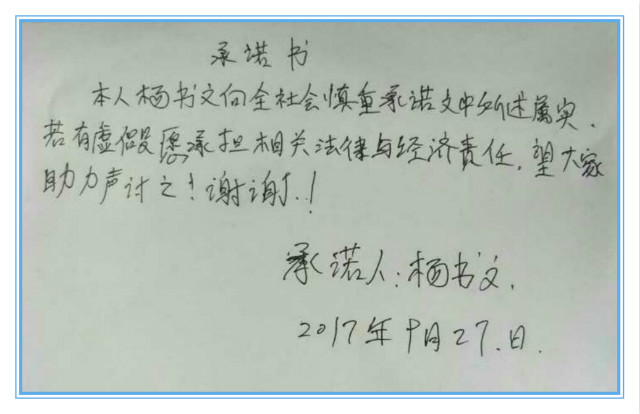 承诺书
本人杨书文向全社会慎重承诺文中所述属实.
若有虚假愿承担相关法律与经济责任,望大家
助力声讨之!谢谢.!
承诺人:杨书文.
2017年9月27.日.